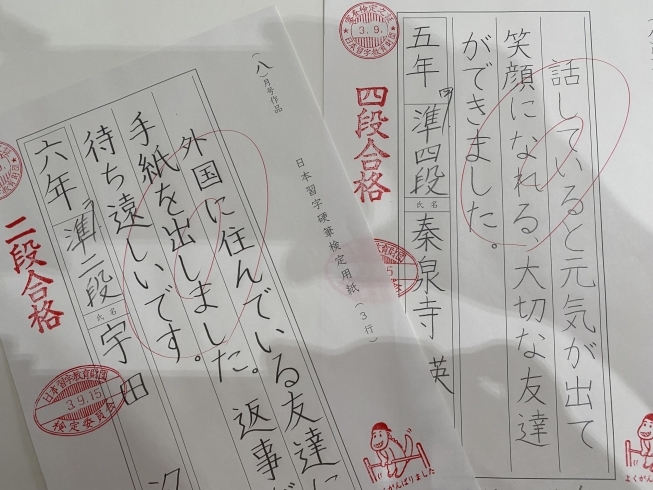 話していると元気が出て
笑顔になれる大切な友達
ができました。
五年
準四段
氏名
秦泉寺 英
四段合格
3.9.
日本習字教育財団
よくがんばりました
(八)月号作品
日本習字硬筆検定用紙(3行)
外国に住んでいる友達に
手紙を出しました。返事が
待ち遠しいです。
六年
準二段
氏名
宇田
二段合格
日本習字教育財団
3.9.15
検定委員会
よくがんばりました